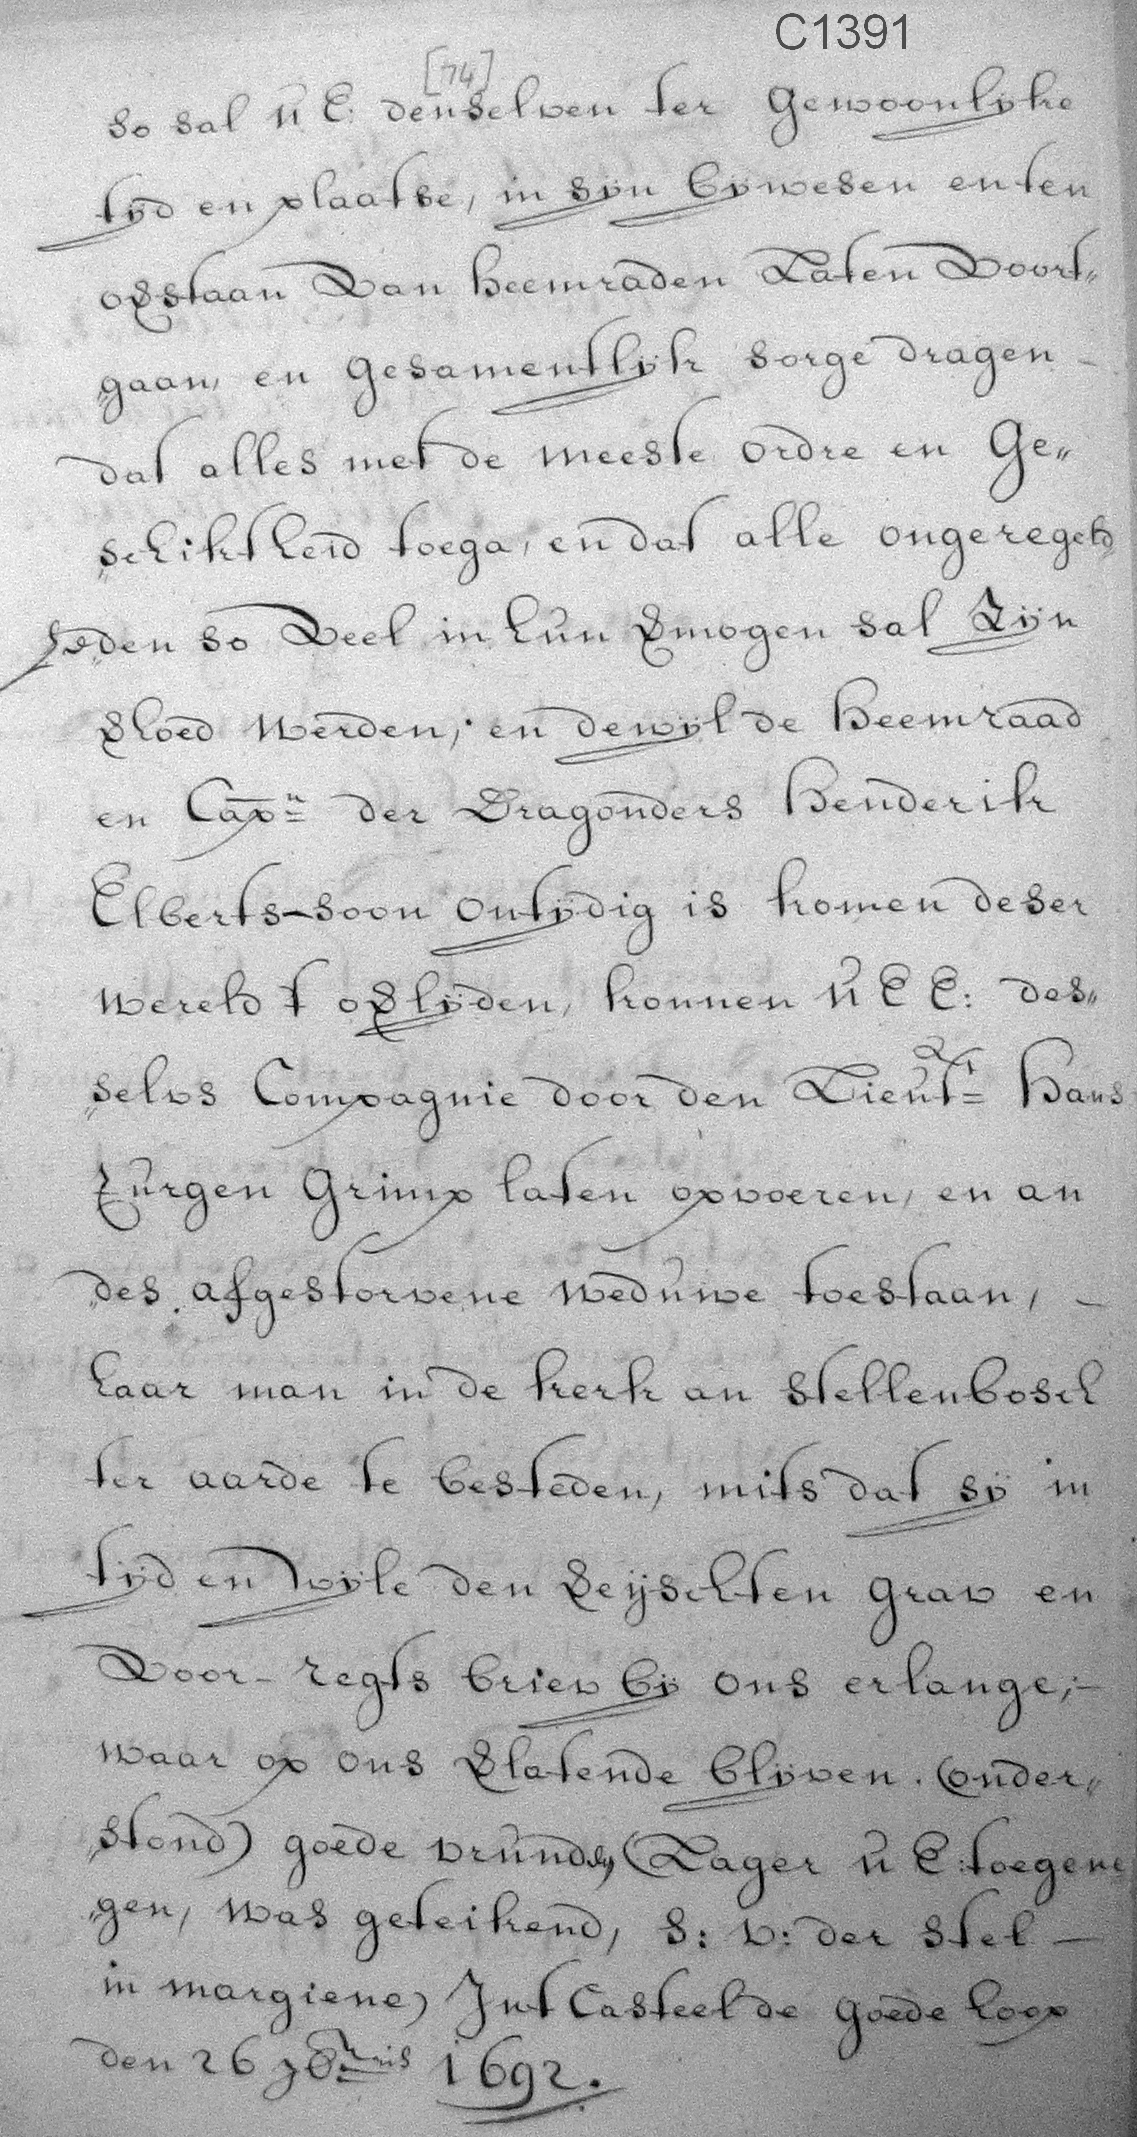 C1391
[74]
so sal U E: denselven ter gewoonlijke
tijd en plaatse, in sijn bijwesen en ten
overstaan van heemraden laten voort„
„gaan, en gesamentlijk sorge dragen –
dat alles met de meeste ordre en ge„
„schiktheid toega, en dat alle ongeregeld„
„heden so veel in hun vermogen sal zijn
verhoed werden; en dewijl de heemraad
en Capn der Dragonders Henderik
Elberts-soon ontijdig is komen deser
wereld t' overlijden, konnen U E E: des„
„selvs Compagnie door den Lieut= Hans
Jurgen Grimp laten opvoeren, en an
des afgestorvene weduwe toestaan, –
haar man in de kerk an Stellenbosch
ter aarde te besteden, mits dat sij in
tijd en wijle den vereijschten grav en
voor-regts briev bij ons erlange; –
waar op ons verlatende blijven. (onder„
„stond) goede vrunden (Lager U E: toegene
„gen, was geteikend, S: v: der Stel –
in margiene) Int Casteel de goede hoop
den 26 7bris 1692.